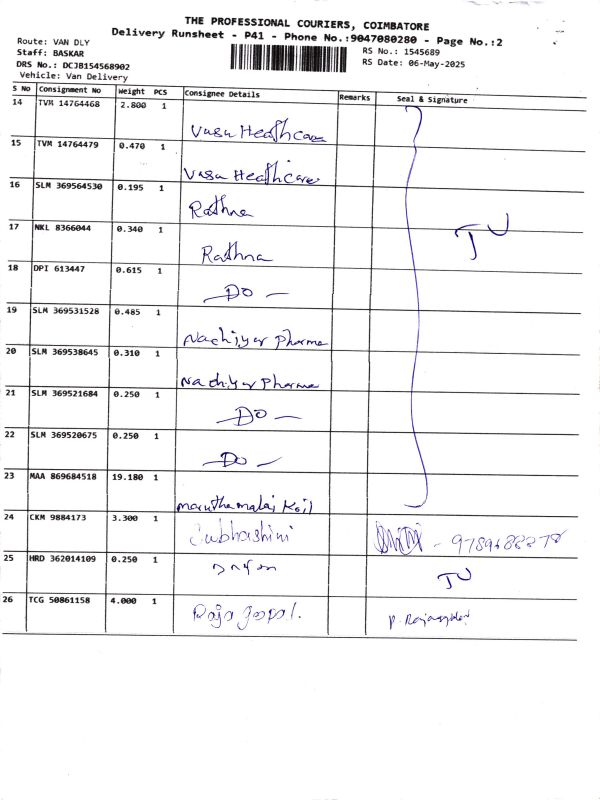 THE PROFESSIONAL COURIERS, COIMBATORE
Delivery Runsheet - P41 - Phone No.:9047080280 - Page No.:2
Route: VAN DLY
Staff: BASKAR
DRS No.: DCJB154568902
Vehicle: Van Delivery
RS No.: 1545689
RS Date: 06-May-2025
S No Consignment No Weight PCS Consignee Details Remarks Seal & Signature
14 TVM 14764468 2.800 1 Vasu Healthcare
15 TVM 14764479 0.470 1 Vasu Healthcare
16 SLM 369564530 0.195 1 Rathna
17 NKL 8366044 0.340 1 Rathna
18 DPI 613447 0.615 1 — DO —
19 SLM 369531528 0.485 1 Nachiyar Pharma
20 SLM 369538645 0.310 1 Nachiyar Pharma
21 SLM 369521684 0.250 1 — DO —
22 SLM 369520675 0.250 1 — DO —
23 MAA 869684518 19.180 1 Maruthamalai Koil
24 CKM 9884173 3.300 1 Subhashini
25 HRD 362014109 0.250 1
26 TCG 50861158 4.000 1 Raja gopal. P. Rajagopal